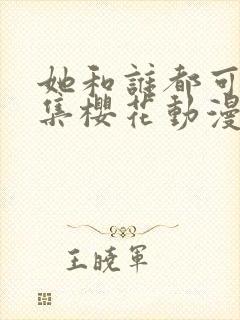 她和誰都可
集櫻花動漫
王曉軍